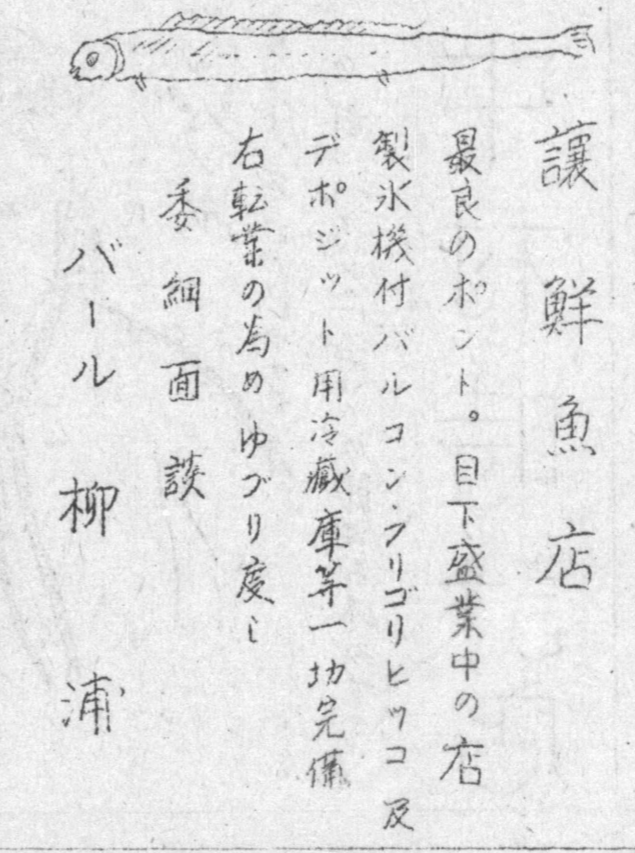 譲鮮魚店
最良のポント。目下盛業中の店
製氷機付バルコンフリゴリヒッコ及
デポジット用冷蔵庫等一切完備
右転業の為めゆづり度し
委細面談
バール柳浦